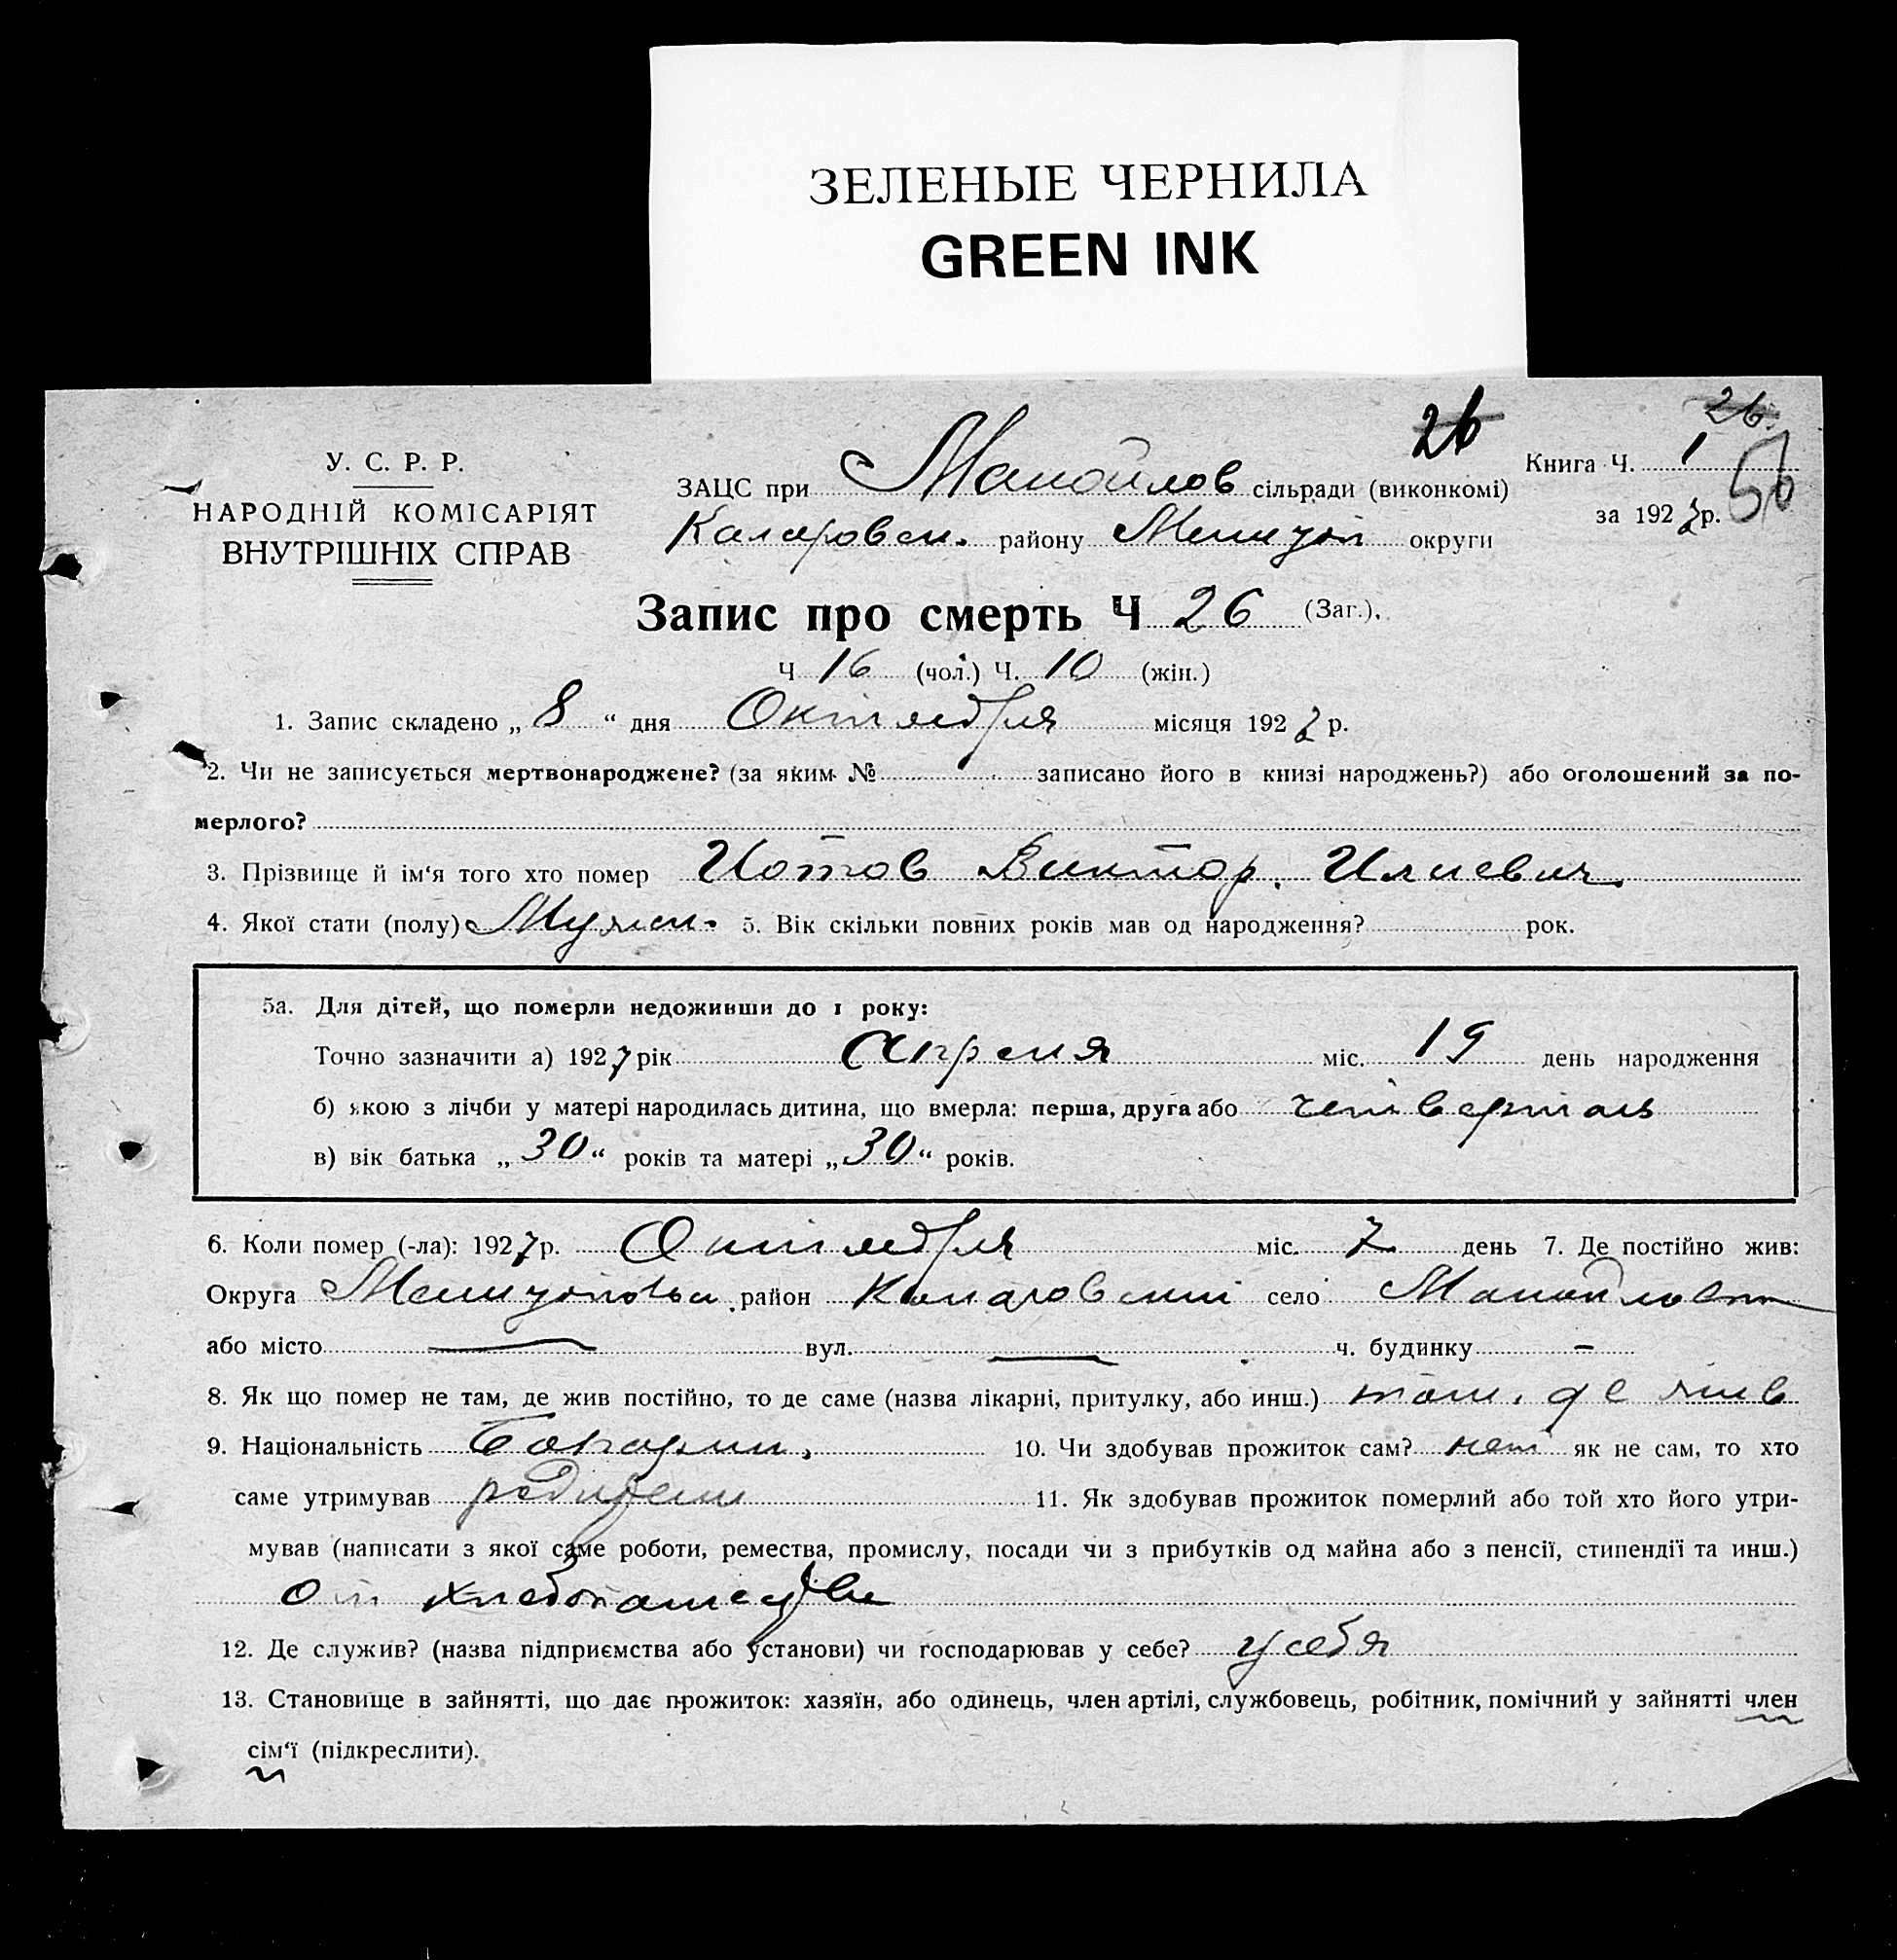 ЗЕЛЕНЫЕ ЧЕРНИЛА
GREEN INK
26
26.
56
У. С. Р. Р.
НАРОДНІЙ КОМІСАРІЯТ
ВНУТРІШНІХ СПРАВ
Книга Ч. 1
за 1927 р.
ЗАЦС при Манойлов сільради (виконкомі)
району Мелитоп округи
Запис про смерть Ч 26 (Заг.),
Ч 16 (чол.) Ч. 10 (жін.)
1. Запис складено „ 8 “ дня Октября місяця 1927 р.
2. Чи не записується мертвонароджене? (за яким №........ записано його в книзі народжень?) або оголошений за по-
мерлого?
3. Прізвище й ім‘я того хто помер Иотов Виктор. Илиевич
4. Якої стати (полу) Мужск. 5. Вік скільки повних років мав од народження? ........ рок.
5а. Для дітей, що померли недоживши до 1 року:
Точно зазначити а) 1927 рік Апреля міс. 19 день народження
б) якою з лічби у матері народилась дитина, що вмерла: перша, друга або
в) вік батька „ 30 “ років та матері „ 30 “ років.
6. Коли помер (-ла): 1927 р. Октября міс. 7 день 7. Де постійно жив:
Округа район село
або місто — вул. — ч. будинку —
8. Як що помер не там, де жив постійно, то де саме (назва лікарні, притулку, або инш.) там, де жив
9. Національність Болгарин, 10. Чи здобував прожиток сам? нет як не сам, то хто
саме утримував родители 11. Як здобував прожиток померлий або той хто його утри-
мував (написати з якої саме роботи, ремества, промислу, посади чи з прибутків од майна або з пенсії, стипендії та инш.)
От хлебопашества
12. Де служив? (назва підприємства або установи) чи господарював у себе? у себя
13. Становище в зайнятті, що дає прожиток: хазяїн, або одинець, член артілі, службовець, робітник, помічний у зайнятті член
сім‘ї (підкреслити).